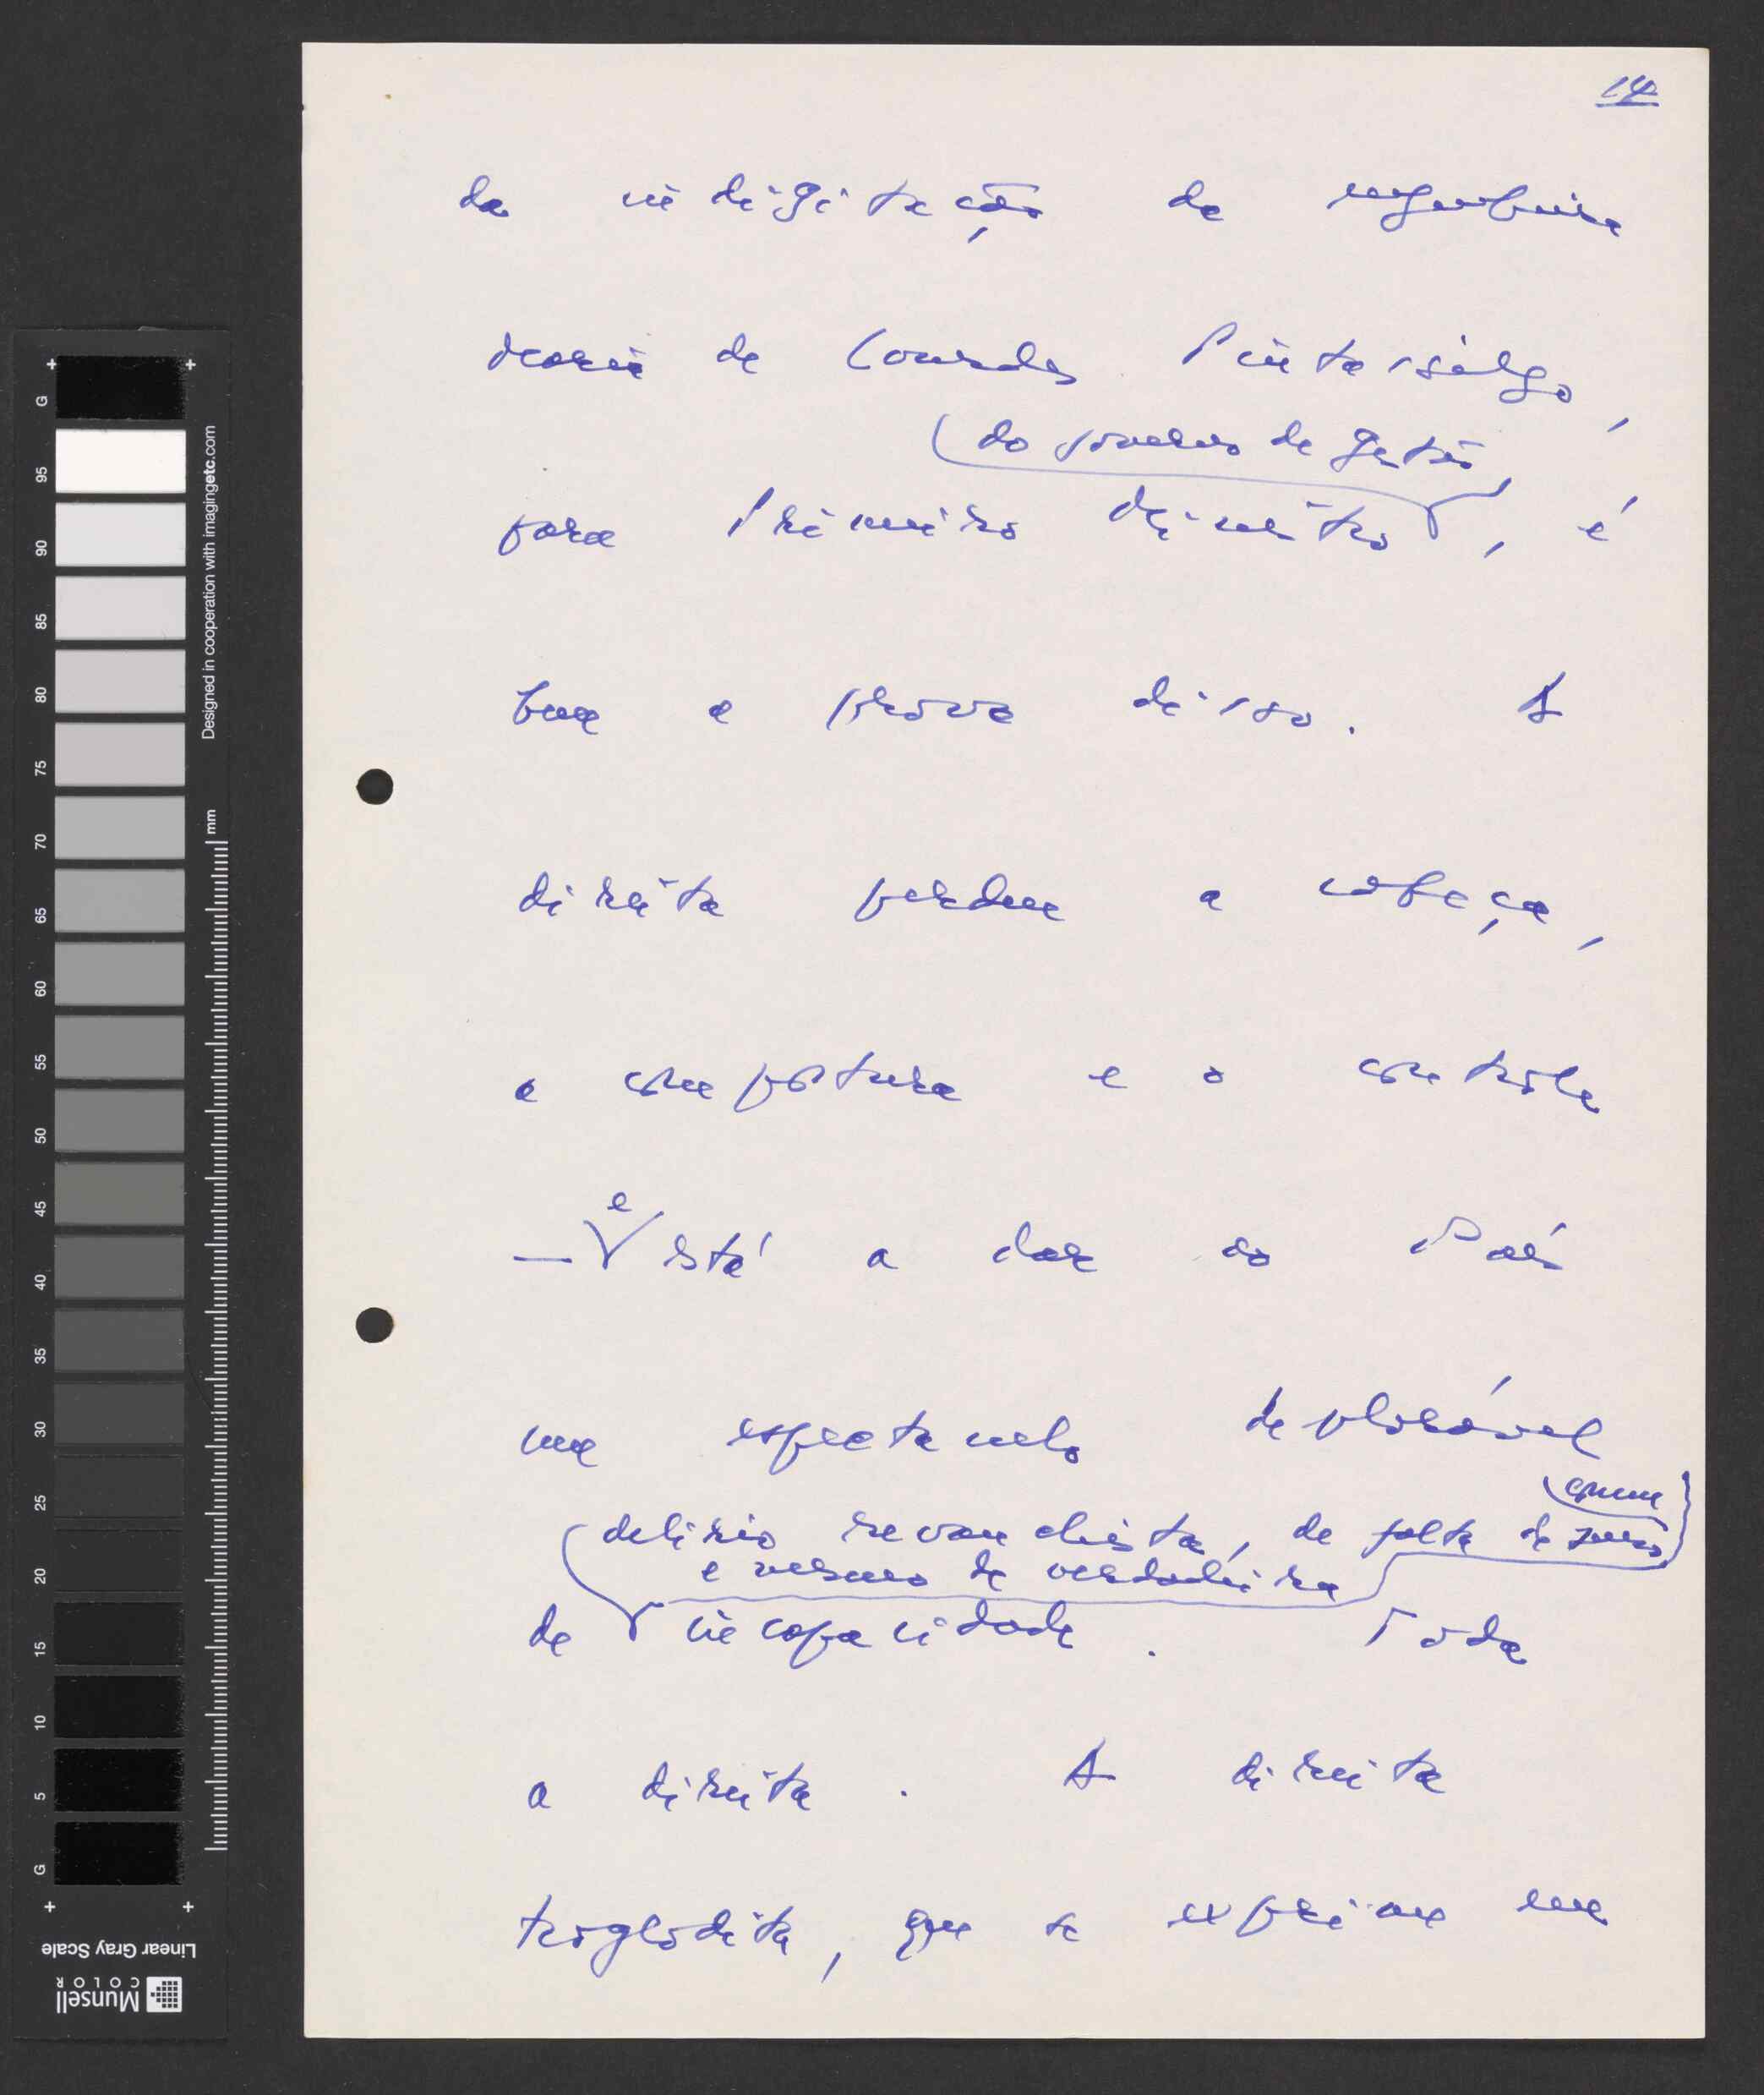 14
da indigitação da engenheira
Maria de Lourdes Pintasilgo,
do governo de gestão,
para Primeiro Ministro, é
boa a prova disso. A
direita perdeu a cabeça,
a compostura e o controle
— e está a dar ao País
um espectáculo deplorável
comum
delírio revanchista, de falta de senso
e mesmo de verdadeira
de incapacidade. Toda
a direita. A direita
troglodita, que se exprime em
G
95
90
85
80
75
70
65
60
55
50
45
40
35
30
25
20
15
10
5
G
Designed in cooperation with imagingetc.com
mm
Linear Gray Scale
Munsell
COLOR